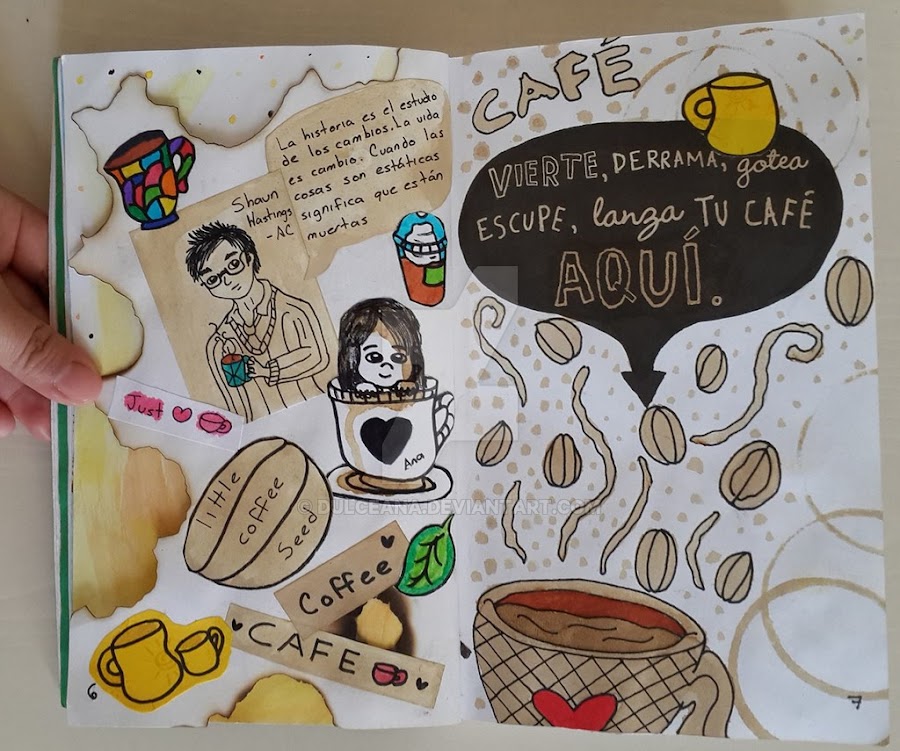 La historia es el estudio
de los cambios. La vida
es cambio. Cuando las
cosas son estáticas
significa que están
muertas
Shaun
Hastings
-AC
Just
Ana
little
coffee
Seed
Coffee
CAFE
6
CAFÉ
VIERTE, DERRAMA, gotea
ESCUPE, lanza TU CAFÉ
AQUÍ.
7
© DULCEANA.DEVIANTART.COM